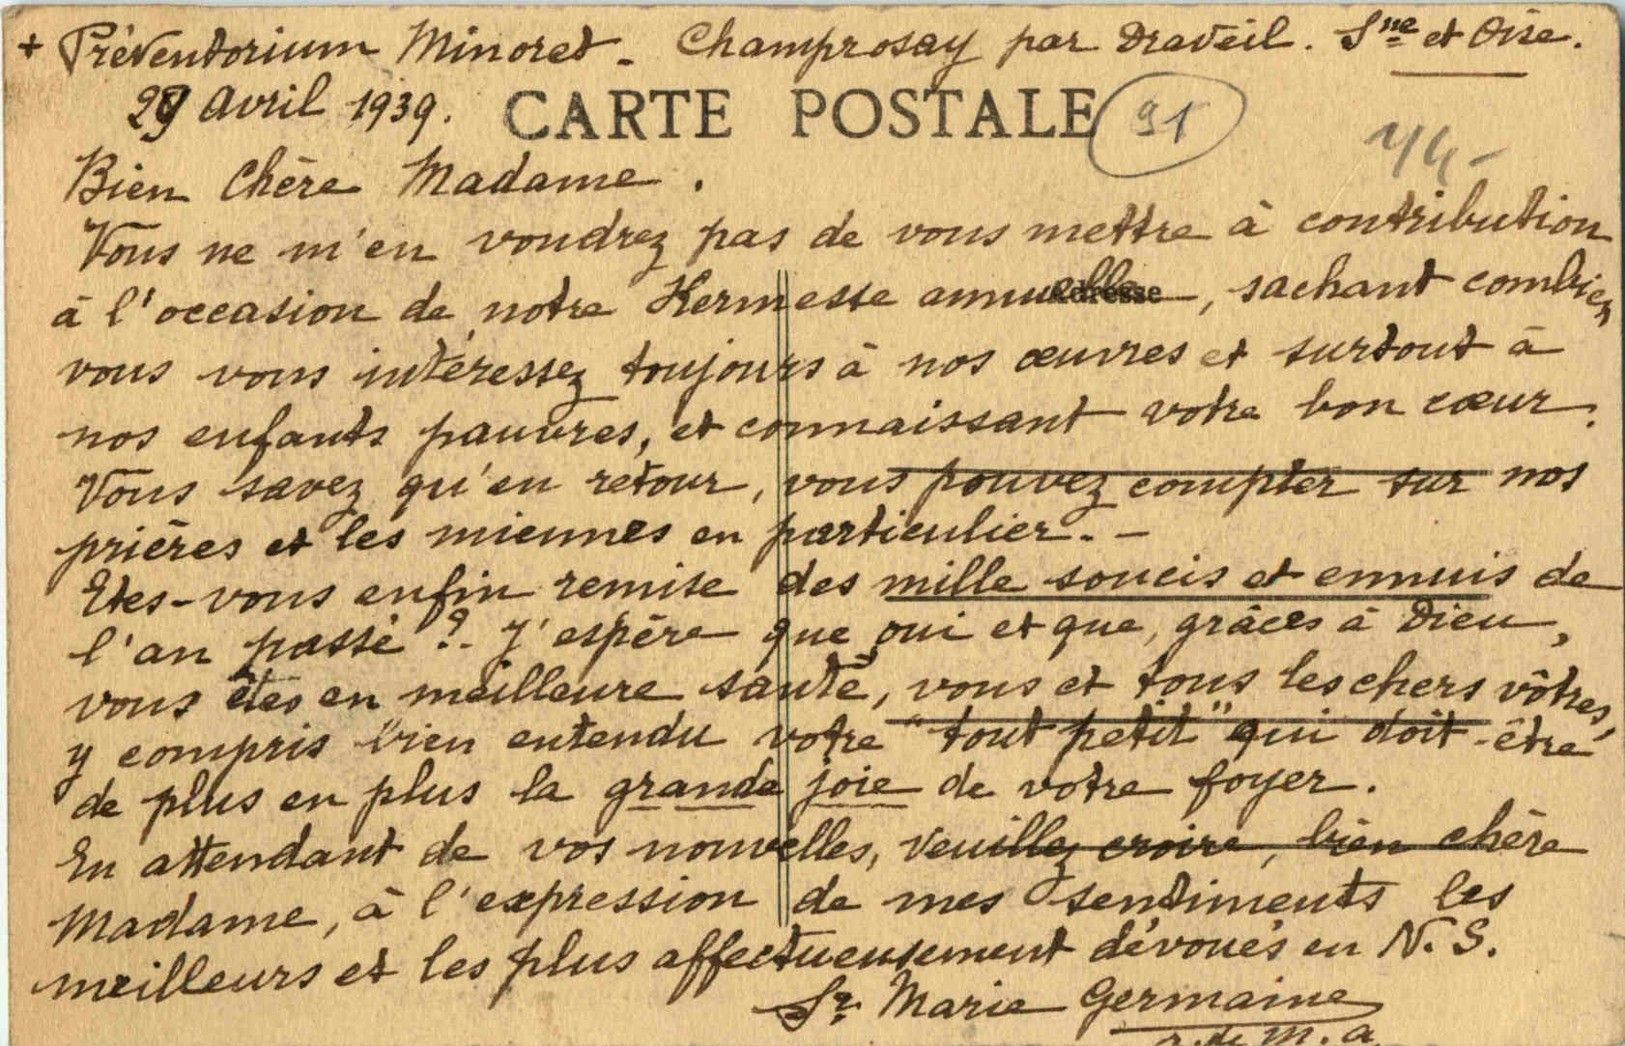 + Préventorium Minoret - Champrosay par Draveil. Sne et Oise.
29 avril 1939.
CARTE POSTALE
91
44-
Bien Chère Madame.
Vous ne m'en voudrez pas de vous mettre à contribution
à l'occasion de notre Kermesse annuelle, sachant combien
Adresse
vous vous intéressez toujours à nos œuvres et surtout à
nos enfants pauvres, et connaissant votre bon cœur.
Vous savez qu'en retour, vous pouvez compter sur nos
prières et les miennes en particulier. -
Etes-vous enfin remise des mille soucis et ennuis de
l'an passé ?- J'espère que oui et que, grâces à Dieu,
vous êtes en meilleure santé, vous et tous les chers vôtres,
y compris bien entendu votre "tout petit" qui doit-être
de plus en plus la grande joie de votre foyer.
En attendant de vos nouvelles, veuillez croire, bien chère
Madame, à l'expression de mes sentiments les
meilleurs et les plus affectueusement dévoués en N. S.
Sr. Marie Germaine
r. de M. a.